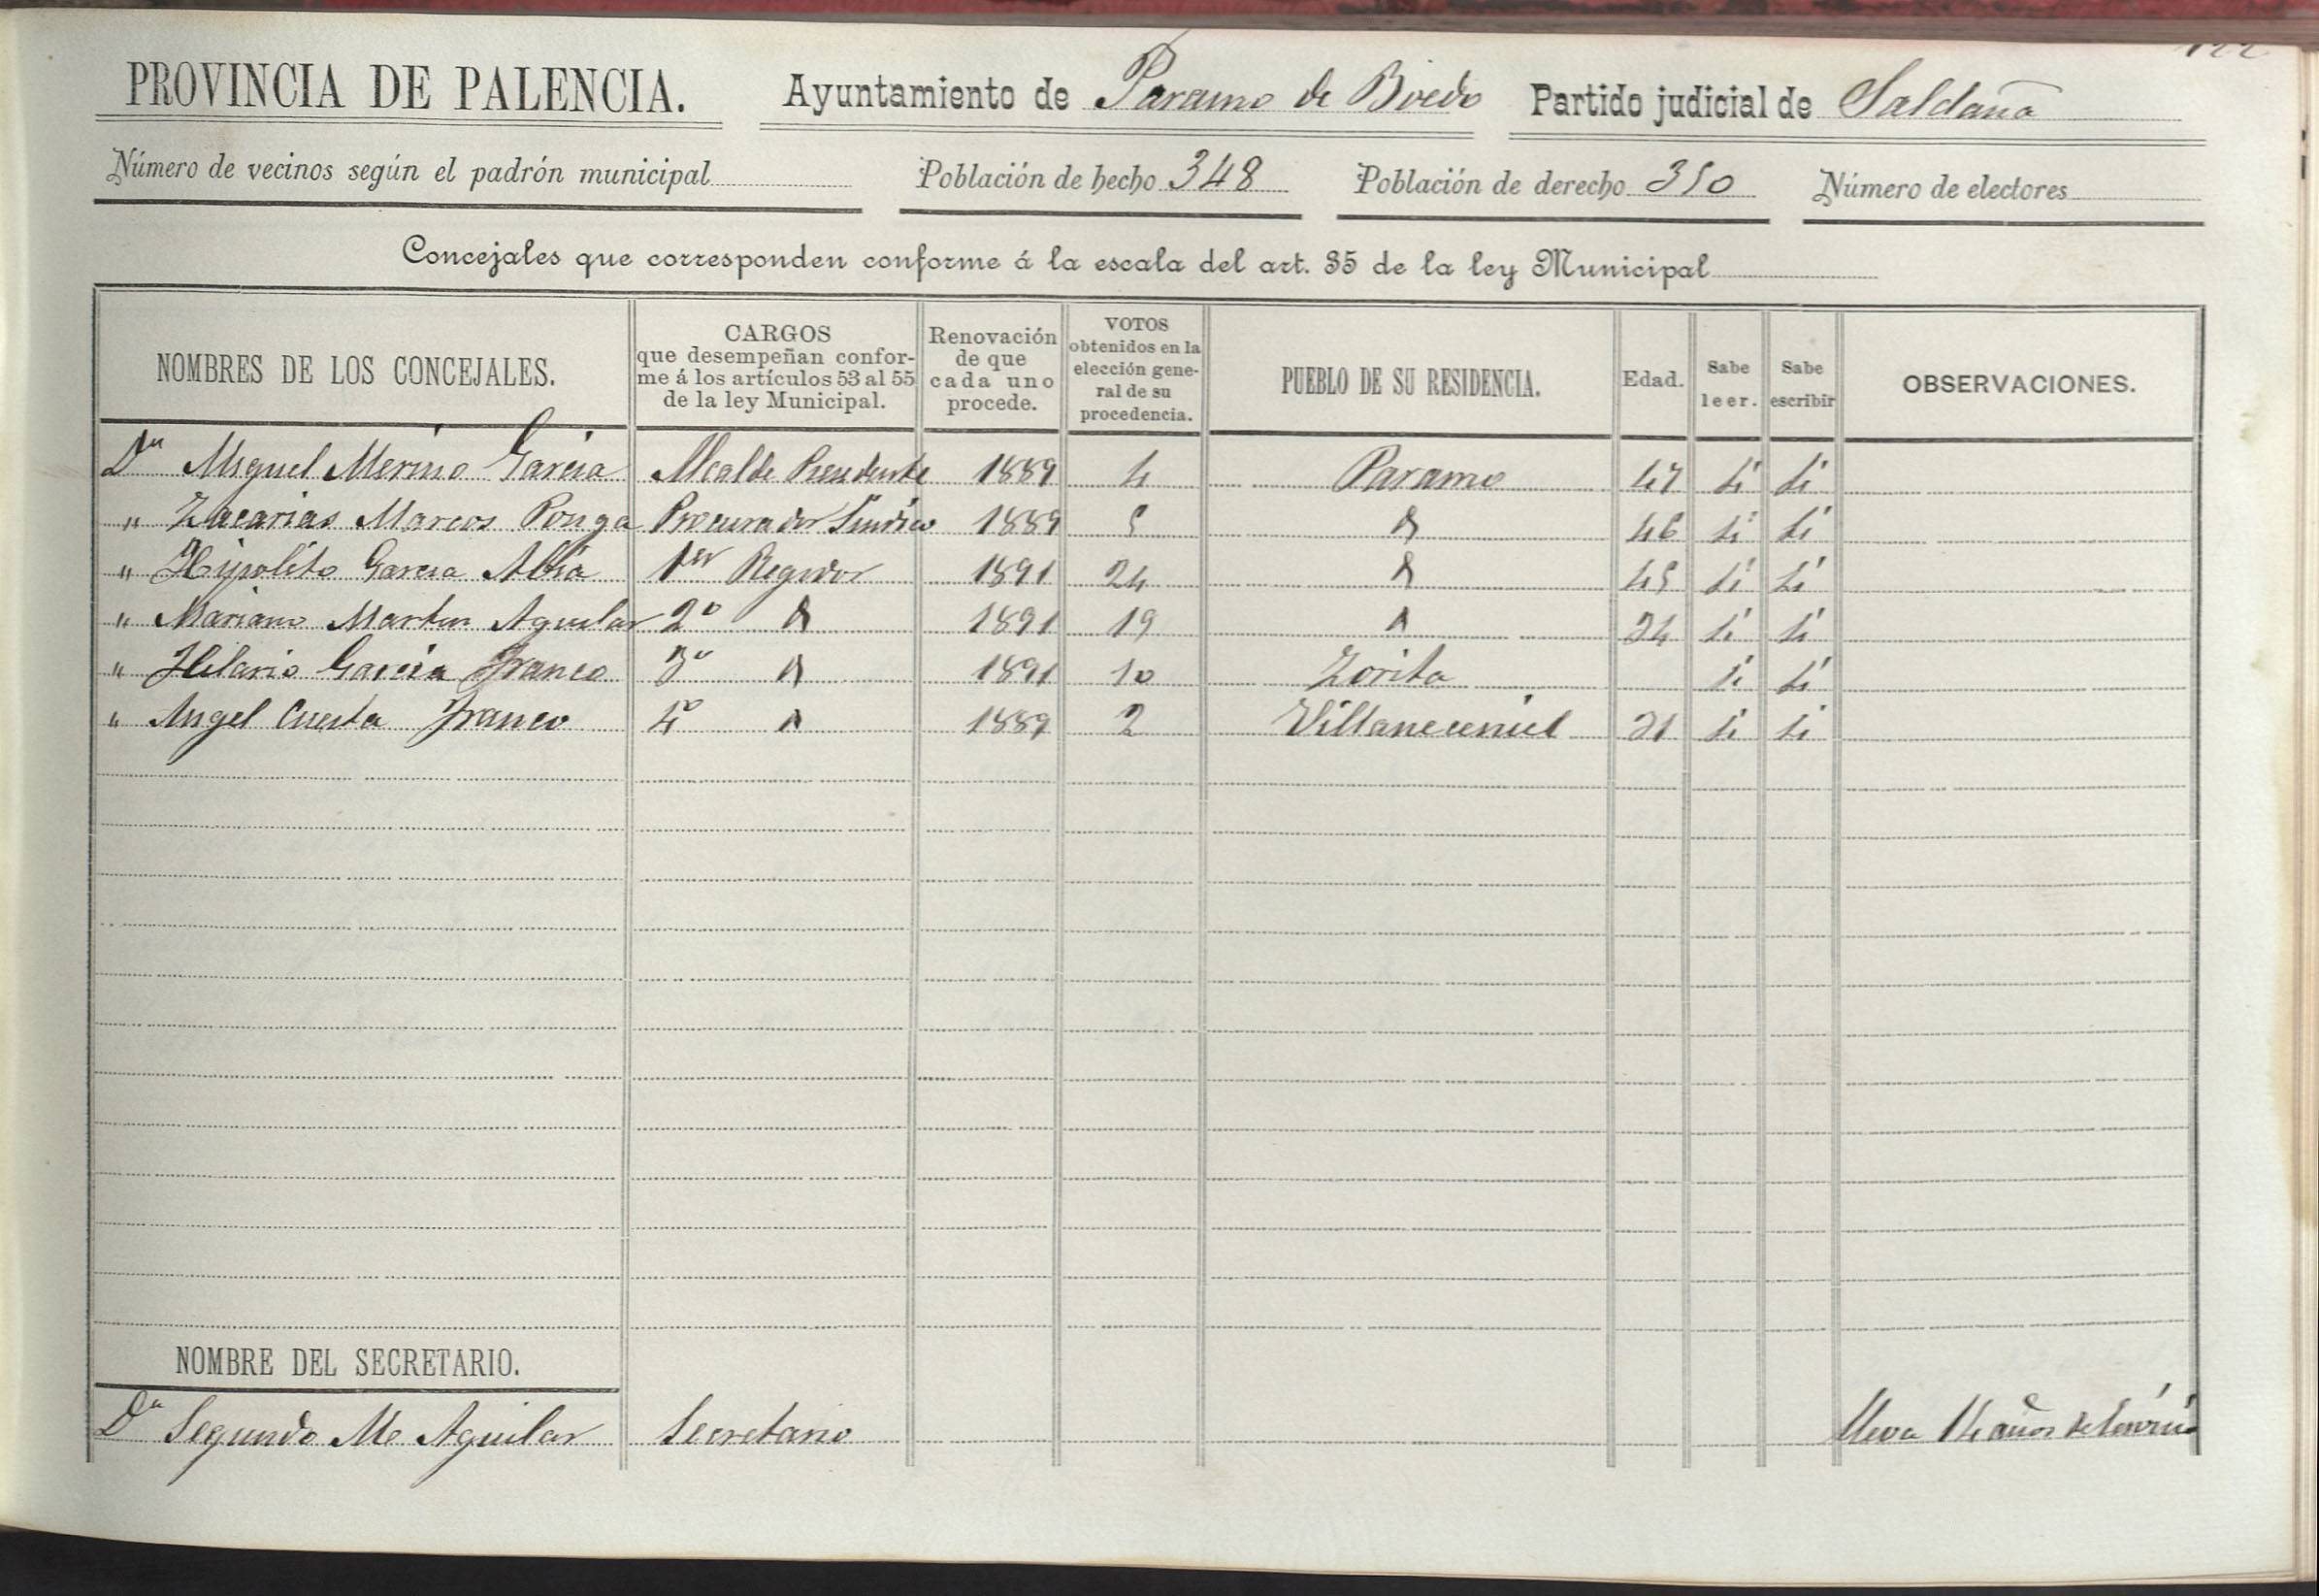 PROVINCIA DE PALENCIA. Ayuntamiento de Paramo de Boedo Partido judicial de Saldaña
Número de vecinos según el padrón municipal Población de hecho 348 Población de derecho 350 Número de electores
Concejales que corresponden conforme á la escala del art. 35 de la ley Municipal
NOMBRES DE LOS CONCEJALES.
CARGOS
que desempeñan confor-
me á los artículos 53 al 55
de la ley Municipal.
Renovación
de que
cada uno
procede.
VOTOS
obtenidos en la
elección gene-
ral de su
procedencia.
PUEBLO DE SU RESIDENCIA.
Edad.
Sabe
leer.
Sabe
escribir
OBSERVACIONES.
Dn Miguel Merino Garcia Alcalde Presidente 1889 4 Paramo 47 si si
" Zacarias Marcos Ponga Procurador Sindico 1889 5 46 si si
" Hipolito Garcia Abia 1er Regidor 1891 24 45 si si
" Mariano Martin Aguilar 2o 1891 19 34 si si
" Hilario Garcia Franco 3o 1891 10 Zorita si si
" Angel Cuesta Franco 4o 1889 2 Villaneceriel 31 si si
NOMBRE DEL SECRETARIO.
Dn Segundo Mo Aguilar Secretario lleva 14 años de